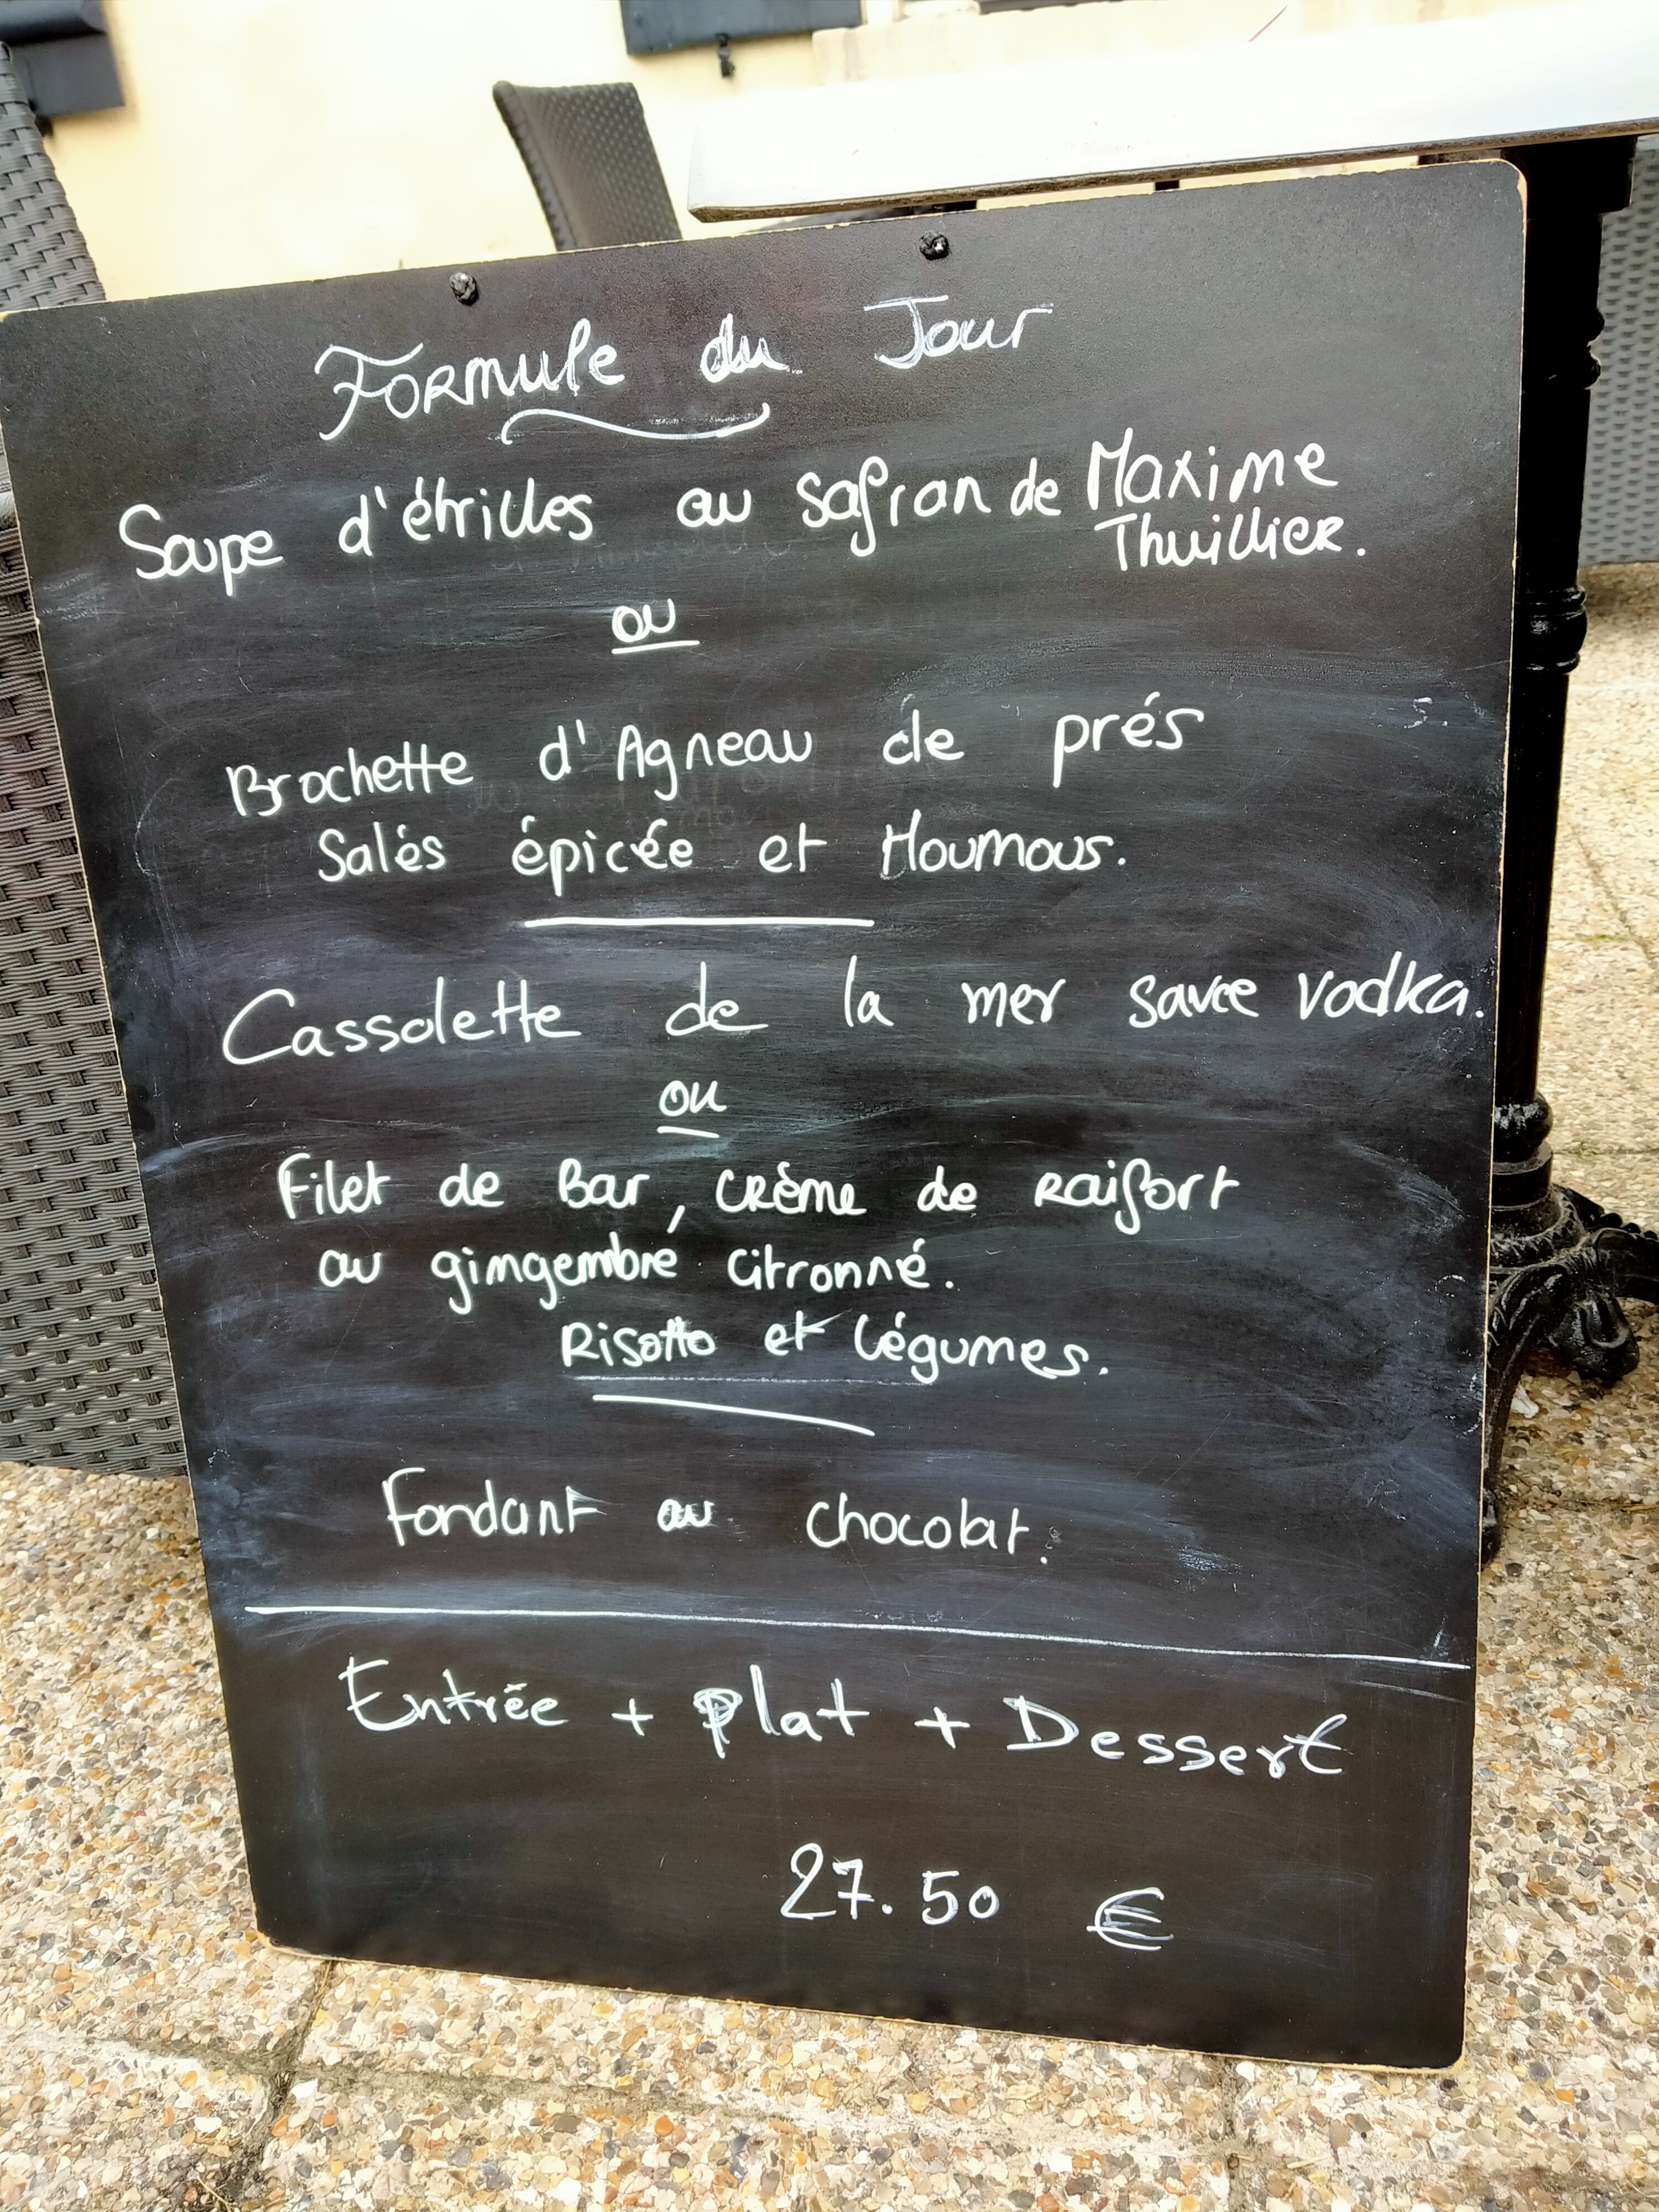 Formule du Jour
Soupe d'étrilles au safran de Maxime
Thuillier.
ou
Brochette d'Agneau de prés
Salés épicée et Houmous.
Cassolette de la mer sauce vodka.
ou
Filet de Bar, crème de Raifort
au gingembre citronné.
Risotto et légumes.
Fondant au chocolat.
Entrée + plat + Dessert
27.50 €